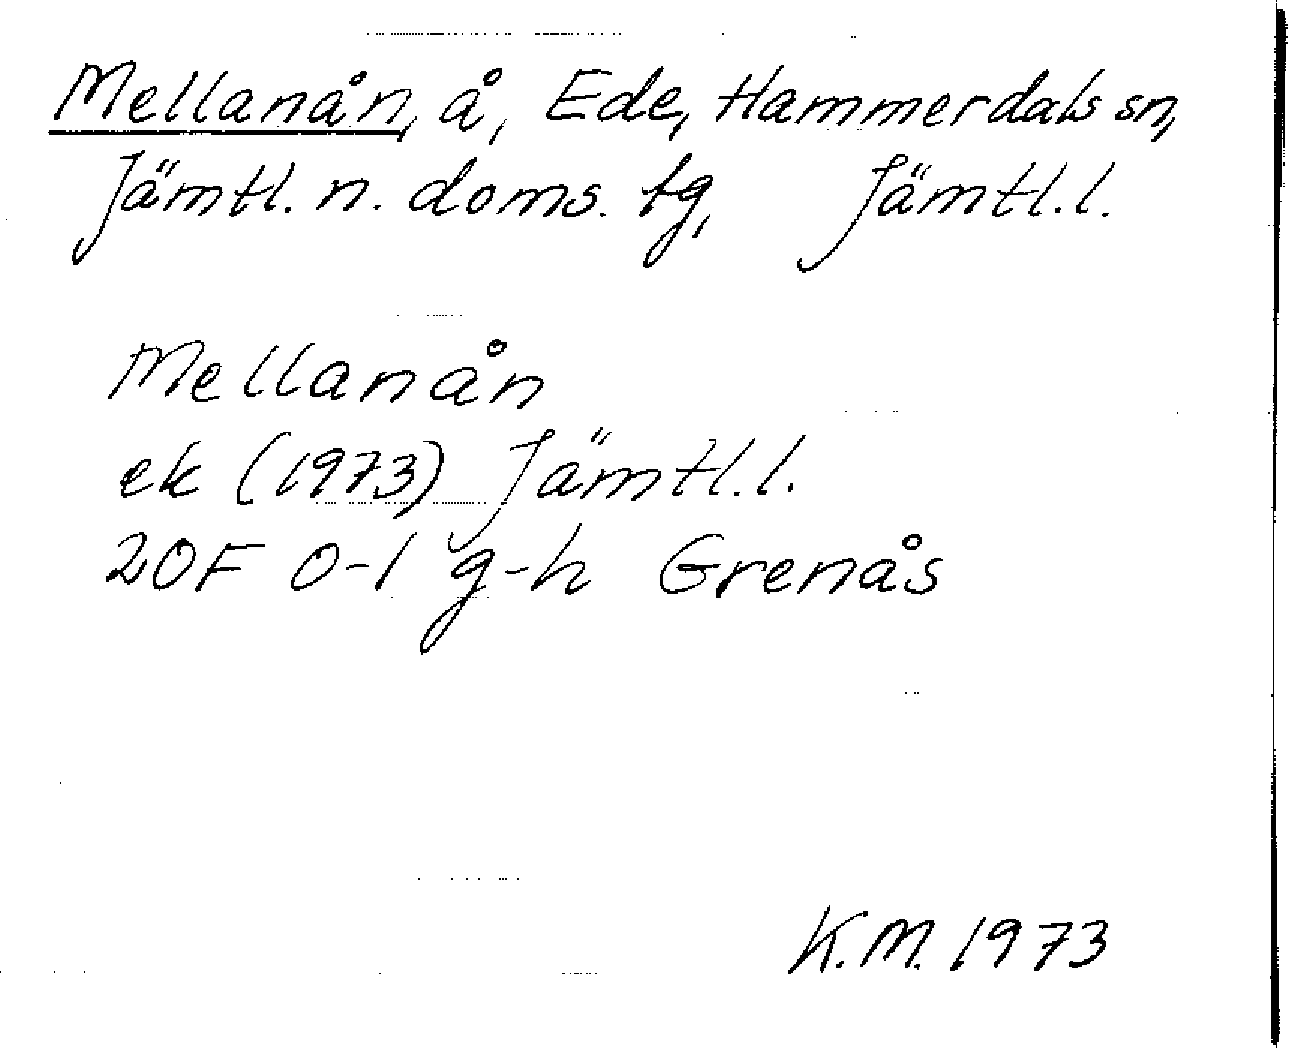 Mellanån, å, Ede, Hammerdals sn,
Jämtl. n. doms. tg, Jämtl.l.
Mellanån
ek (1973) Jämtl.l.
20F 0-1 g-h Grenås
K.M. 1973